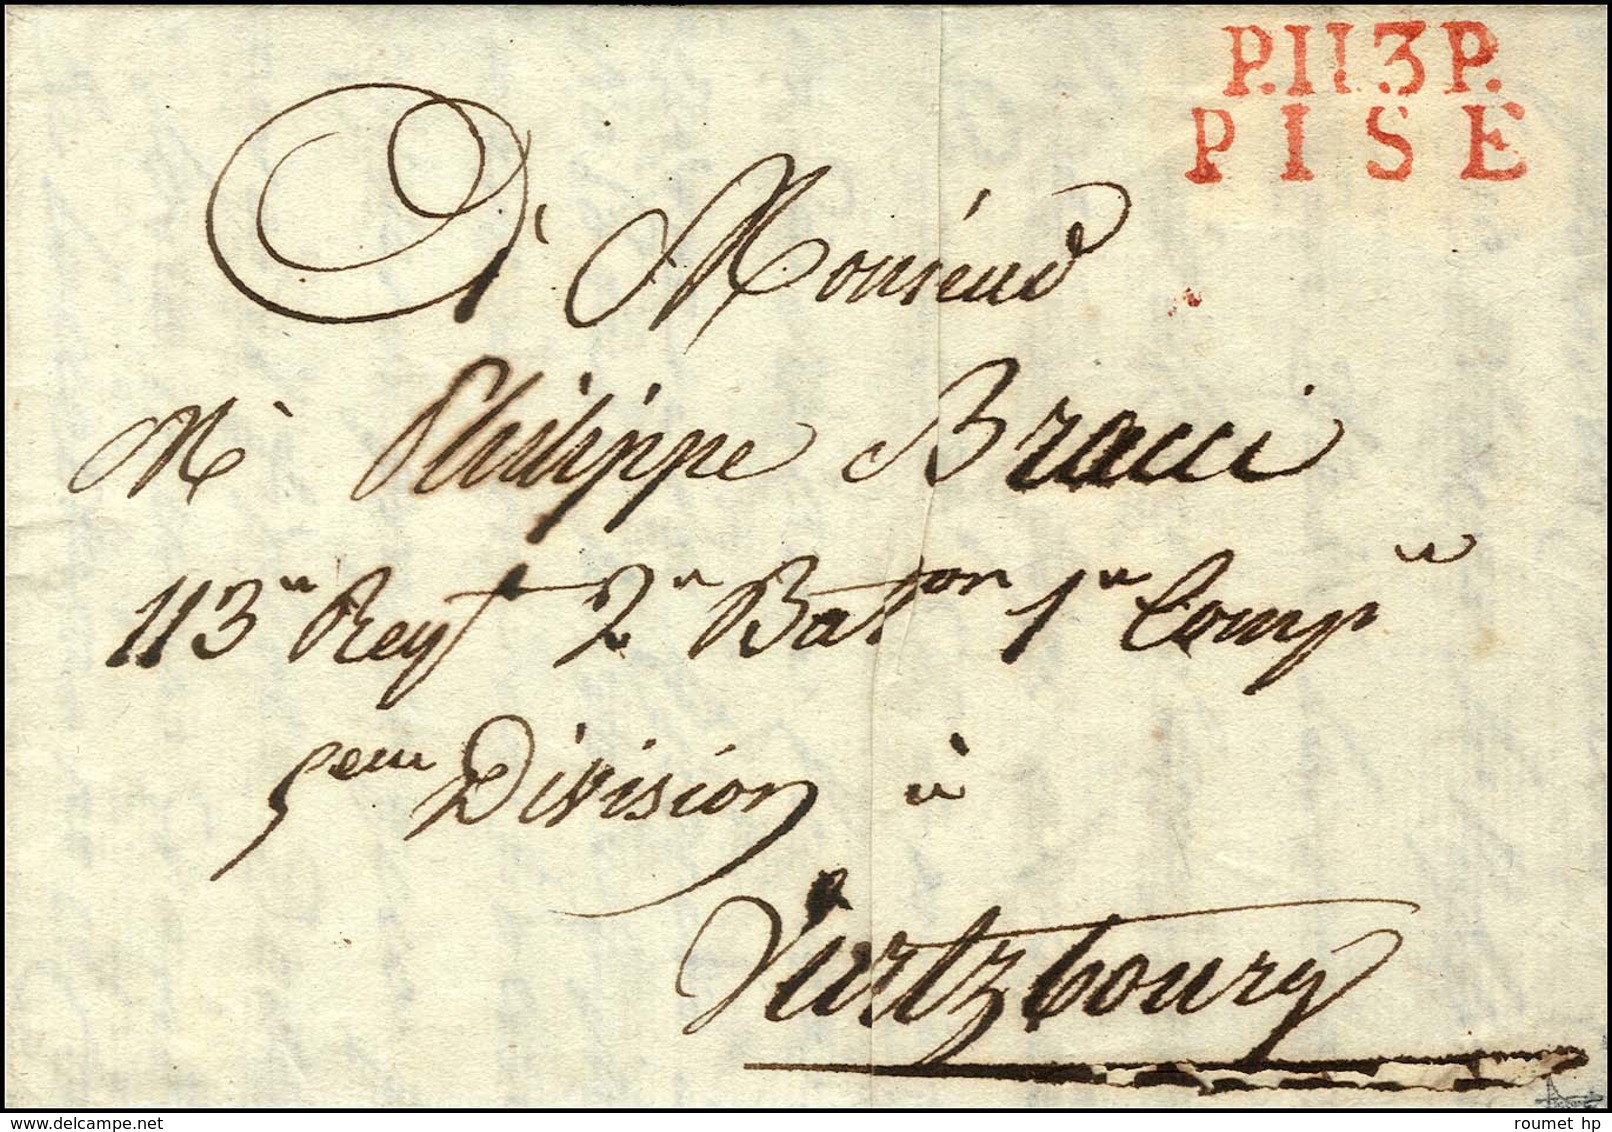 P.113P.
PISE
A Monsieur
Mr Philippe Bracci
113me Regt 2me Baton 1re Compie
5eme Division à
Vurtzbourg
roumet hp
www.delcampe.net